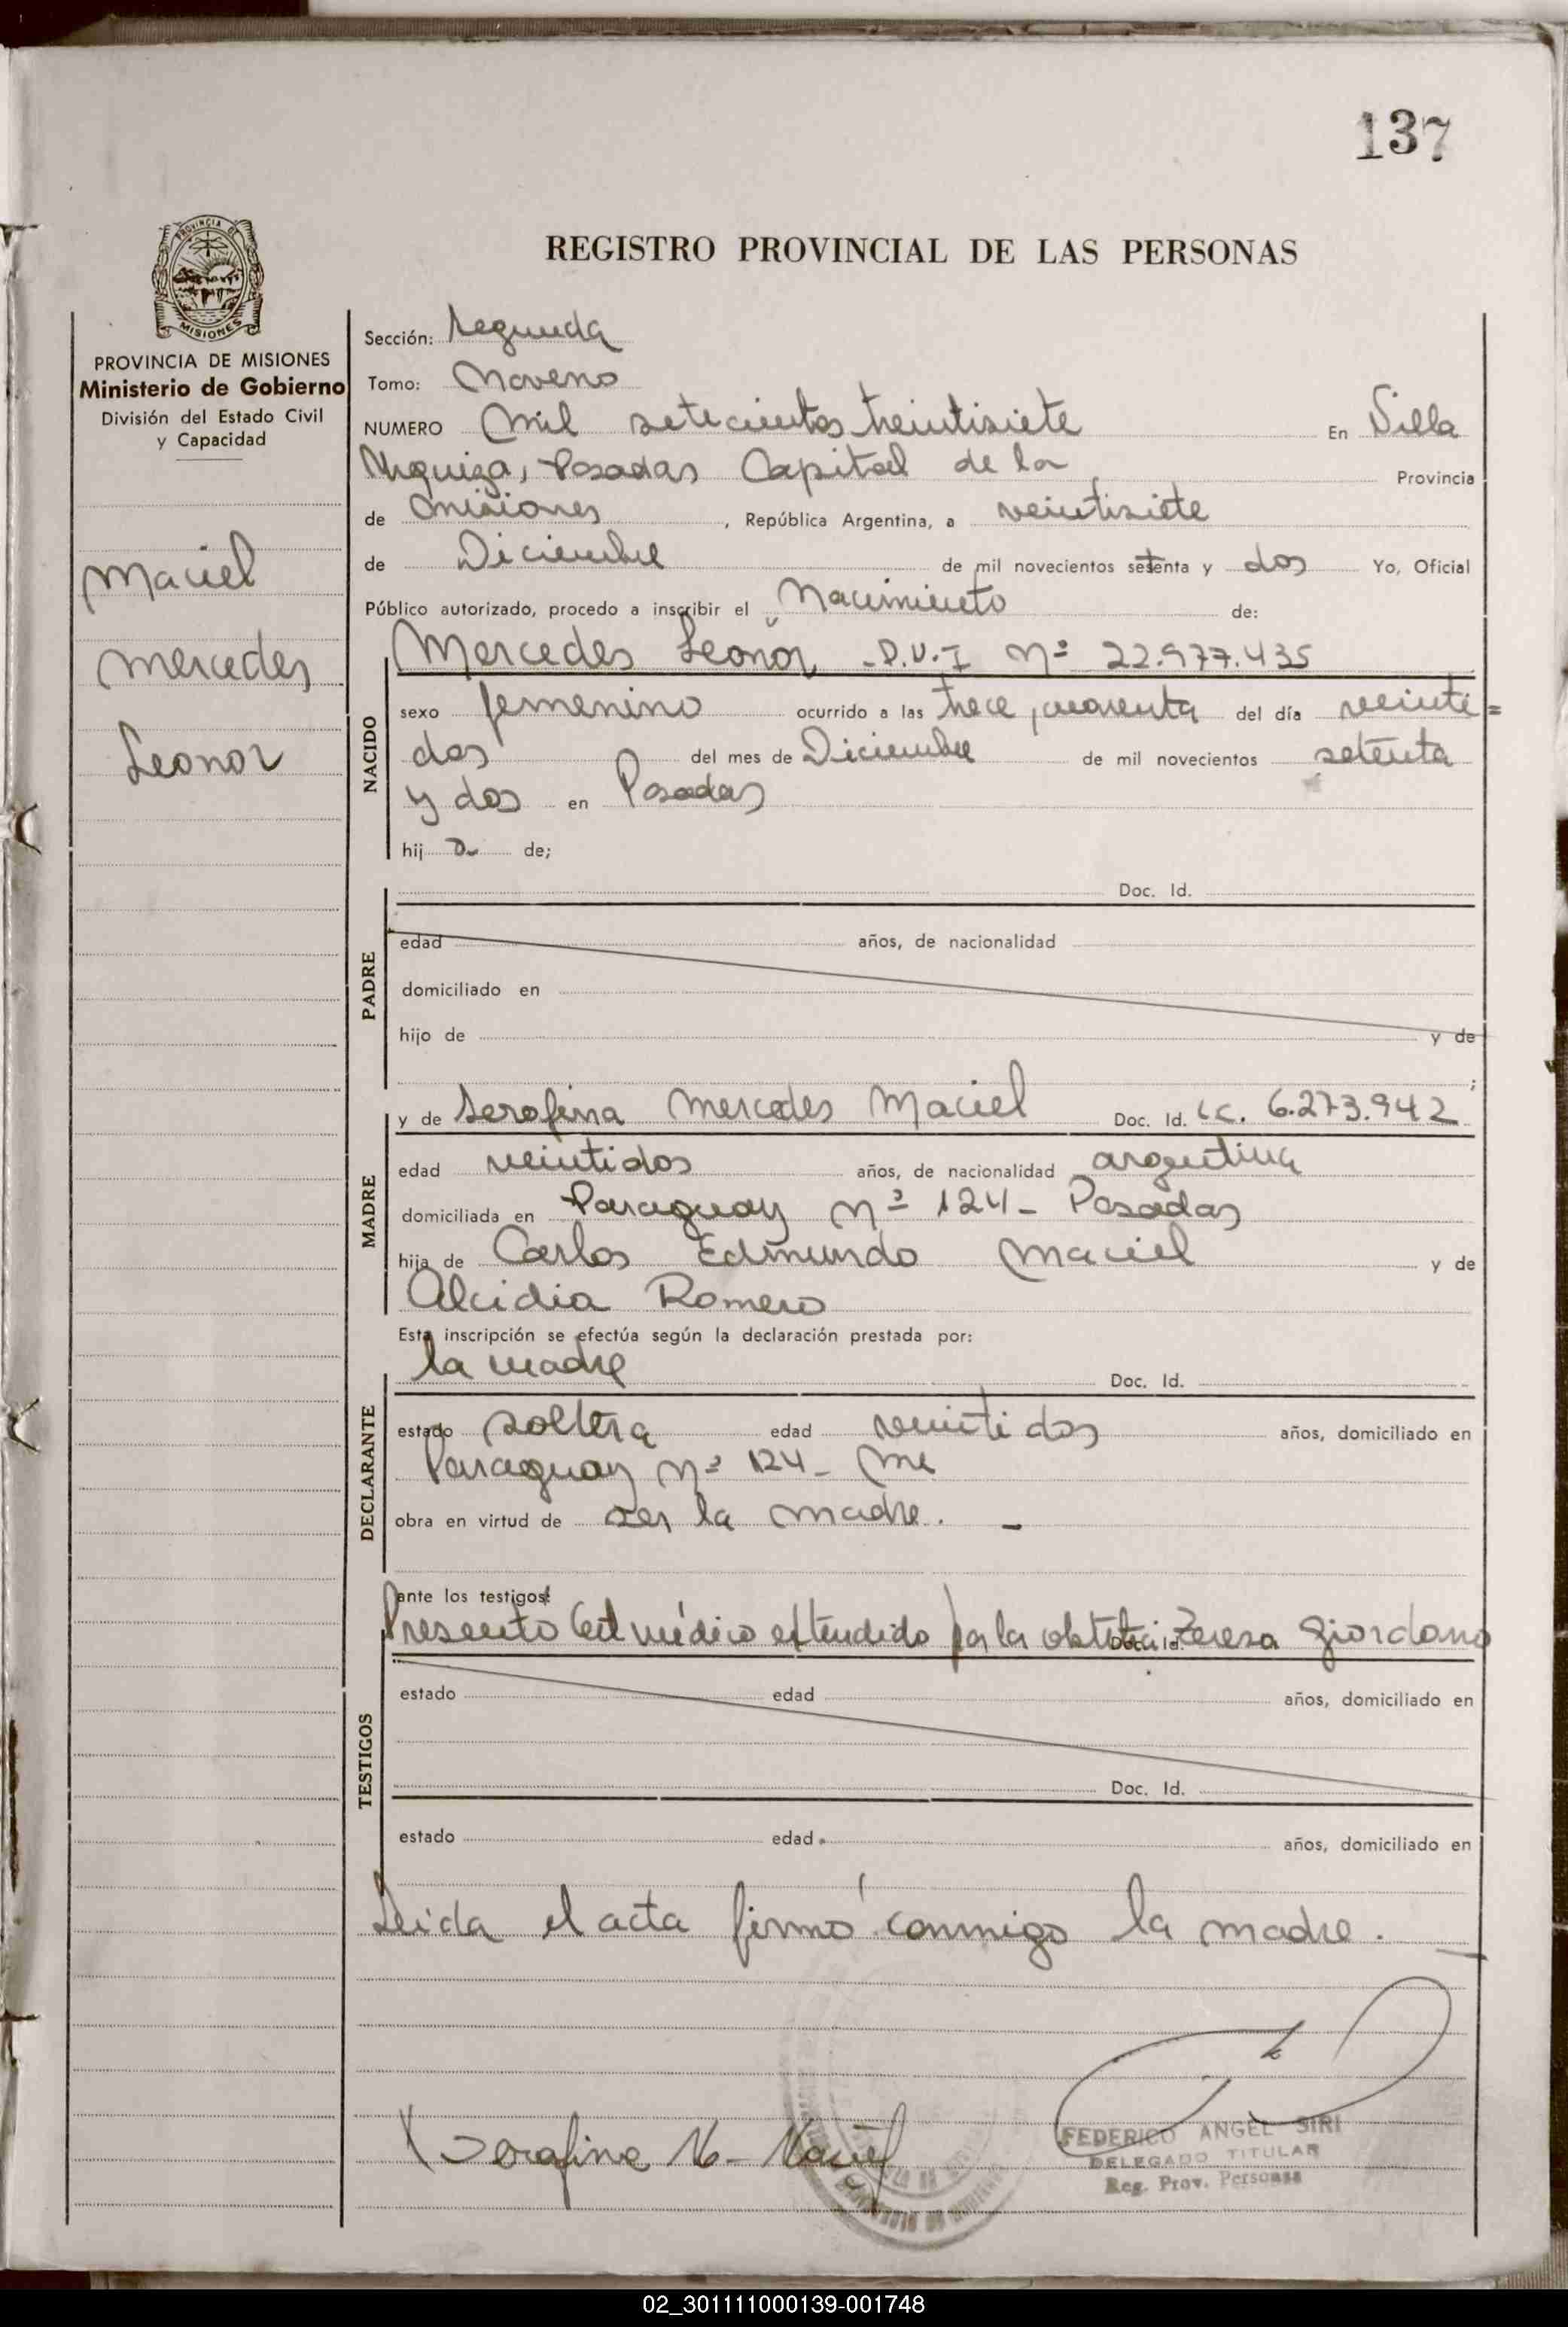 137
REGISTRO PROVINCIAL DE LAS PERSONAS
PROVINCIA DE MISIONES
PROVINCIA DE MISIONES
Ministerio de Gobierno
División del Estado Civil
y Capacidad
Maciel
Mercedes
Leonor
Sección: Segunda
Tomo: Noveno
NUMERO Mil setecientos treintisiete En Villa
Urquiza, Posadas Capital de la Provincia
de Misiones, República Argentina, a veintisiete
de Diciembre de mil novecientos setenta y dos Yo, Oficial
Público autorizado, procedo a inscribir el Nacimiento de:
NACIDO
Mercedes Leonor - D.U.I Nº 22.977.435
sexo femenino ocurrido a las trece, cuarenta del día veinti=
dos del mes de Diciembre de mil novecientos setenta
y dos en Posadas
hij a de;
PADRE
Doc. Id.
edad años, de nacionalidad
domiciliado en
hijo de y de
;
MADRE
y de Serafina Mercedes Maciel Doc. Id. LC. 6.273.942
edad veintidos años, de nacionalidad argentina
domiciliada en Paraguay Nº 124 - Posadas
hija de Carlos Edmundo Maciel y de
Alcidia Romero
Esta inscripción se efectúa según la declaración prestada por:
DECLARANTE
la madre Doc. Id.
estado soltera edad veintidos años, domiciliado en
Paraguay Nº 124 - Me
obra en virtud de ser la madre. -
ante los testigos:
TESTIGOS
Presento Cert médico extendido por la obstetri Teresa Giordano
Doc. Id.
estado edad años, domiciliado en
Doc. Id.
estado edad años, domiciliado en
Leida el acta firmó conmigo la madre.
X Serafina M- Maciel
FEDERICO ANGEL SIRI
DELEGADO TITULAR
Reg. Prov. Personas
02_301111000139-001748